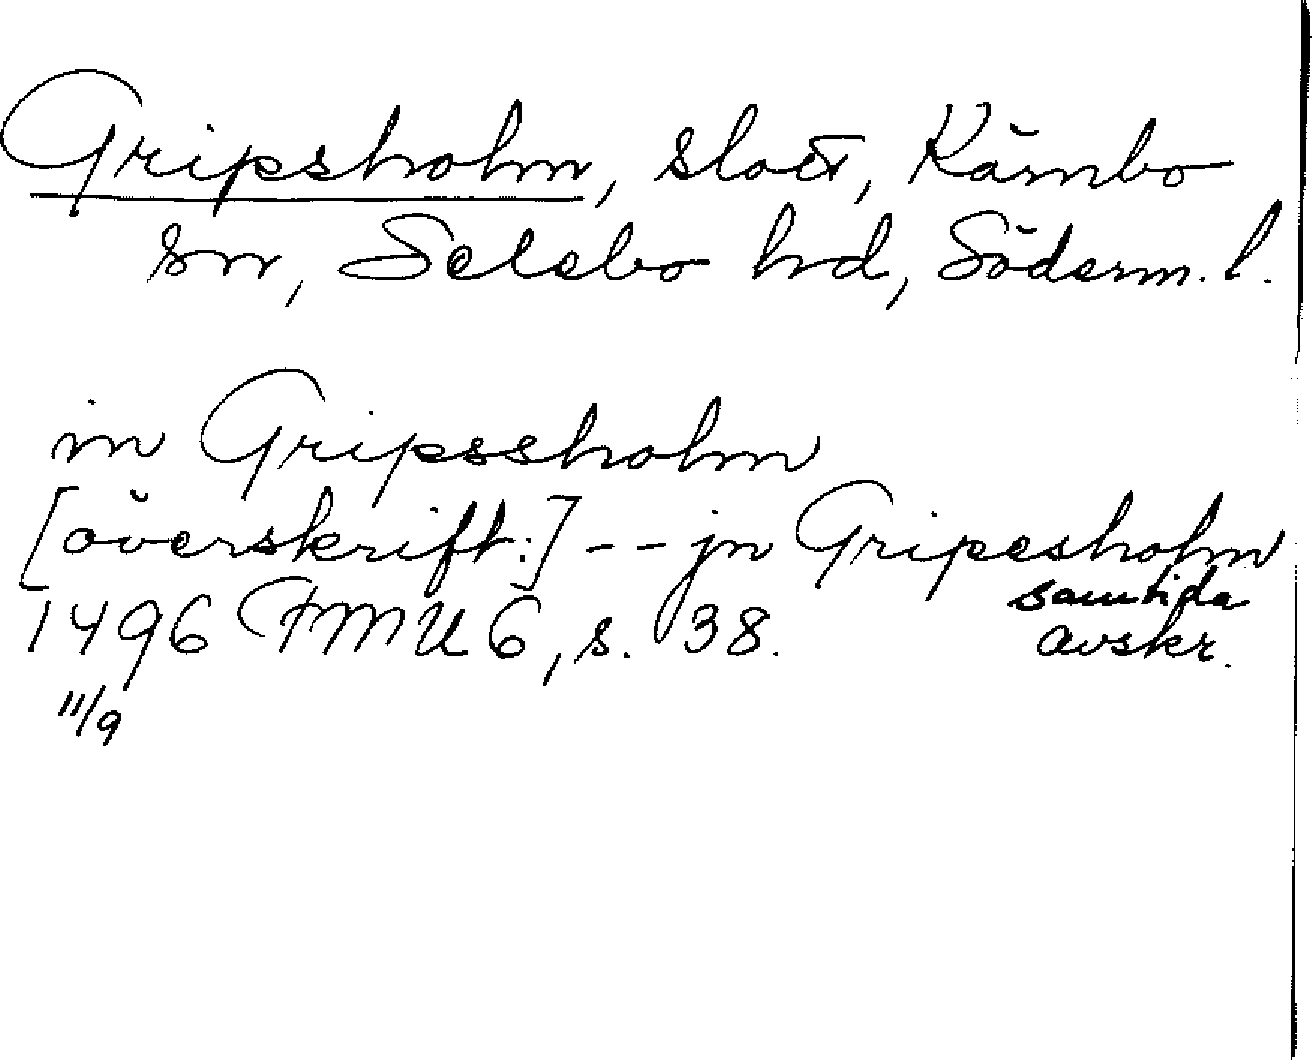 Gripsholm, slott, Kärnbo
sn, Selebo hd, Söderm. l.
in Gripssholm
[överskrift:] -- jn Gripesholm
1496 FMU 6, s. 38. samtida
avskr.
11/9